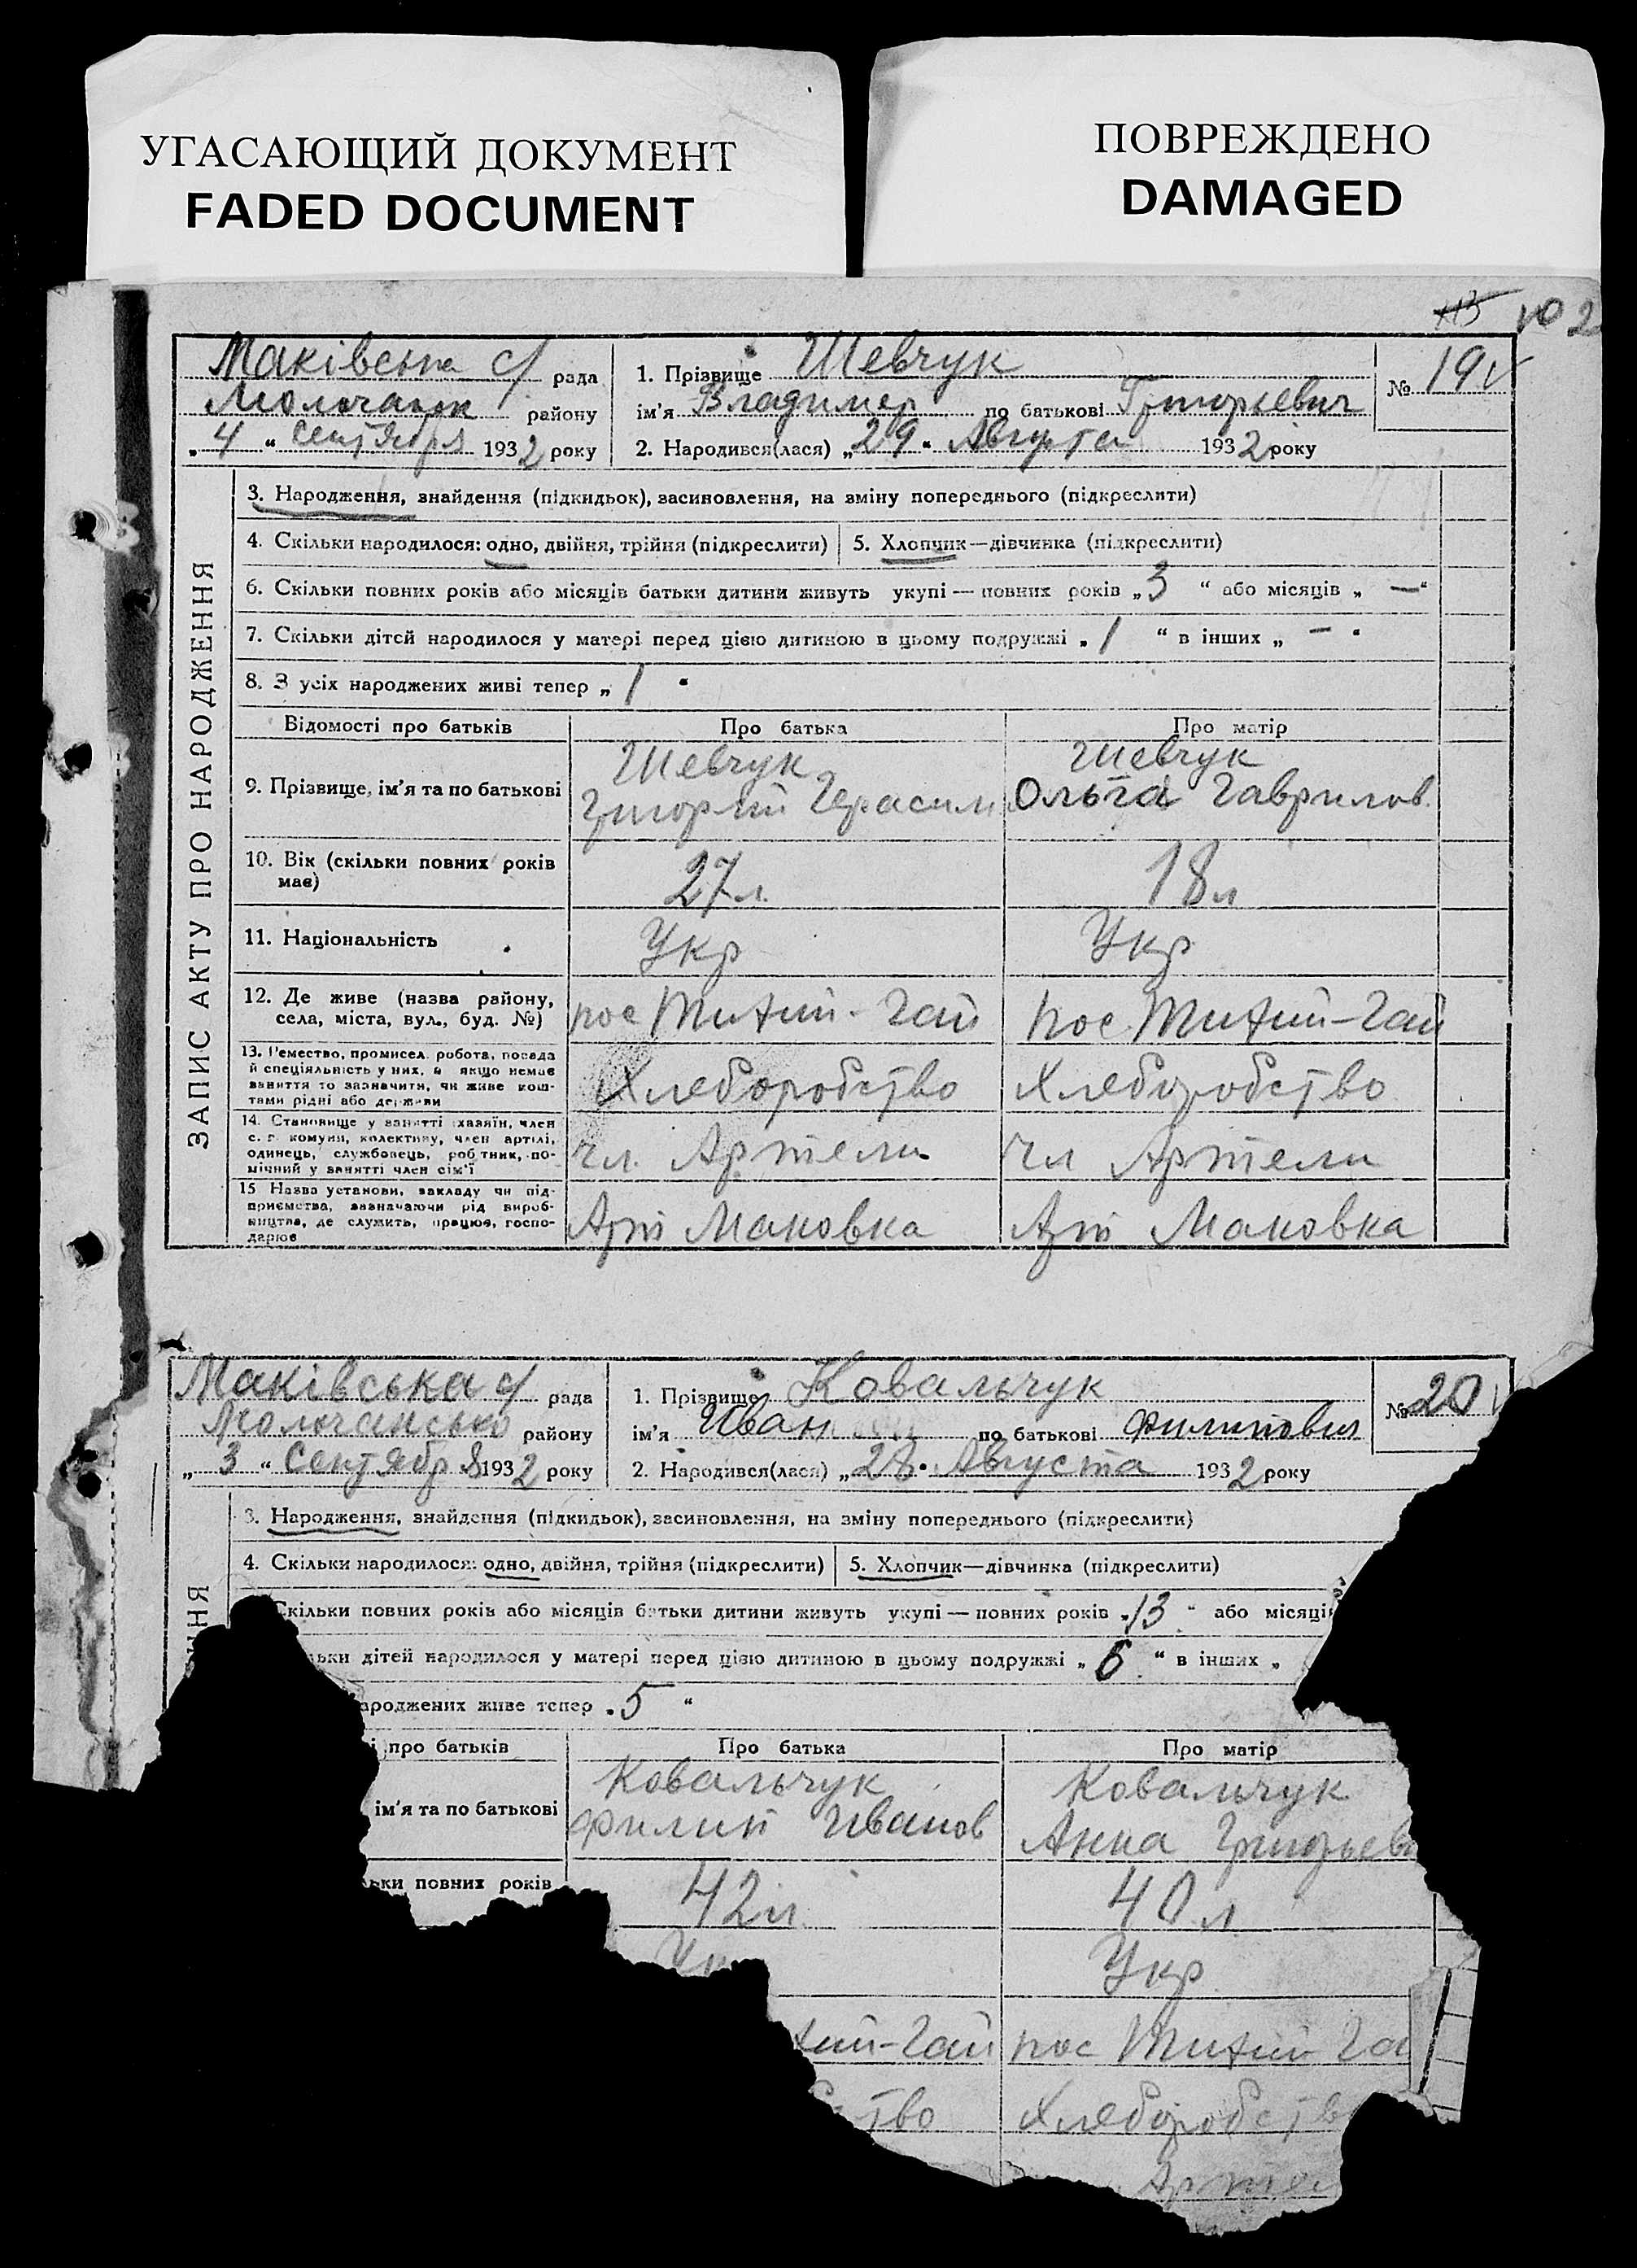 УГАСАЮЩИЙ ДОКУМЕНТ
FADED DOCUMENT
ПОВРЕЖДЕНО
DAMAGED
113 102
Маківська с/ рада
района
„4“ Сентября 1932 року
1. Прізвище Шевчук
ім'я Владимер по батькові Григорьевич
2. Народився(лася) „29“ Августа 1932 року
№ 19
ЗАПИС АКТУ ПРО НАРОДЖЕННЯ
3. Народження, знайдення (підкидьок), засиновлення, на зміну попереднього (підкреслити)
4. Скільки народилося: одно, двійня, трійня (підкреслити) 5. Хлопчик—дівчинка (підкреслити)
6. Скільки повних років або місяців батьки дитини живуть укупі — повних років „3“ або місяців „—“
7. Скільки дітей народилося у матері перед цією дитиною в цьому подружжі „1“ в інших „—“
8. З усіх народжених живі тепер „1“
Відомості про батьків Про батька Про матір
9. Прізвище, ім'я та по батькові
Шевчук
Григорий Герасим
Шевчук
Ольга Гаврилов.
10. Вік (скільки повних років
має)
27 л. 18 л
11. Національність Укр Укр
12. Де живе (назва району,
села, міста, вул., буд. №)
пос Тихий-Гай пос. Тихий-Гай
13. Ремество, промисел, робота, посада
й спеціяльність у них, а якщо немає
заняття то зазначити, чи живе кош-
тами рідні або держави
Хлеборобство Хлеборобство
14. Становище у занятті хазяїн, член
с. г. комуни, колективу, член артілі,
одинець, службовець, робітник, по-
мічний у занятті член сім'ї
чл. Артели чл Артели
15 Назва установи, закладу чи під-
приємства, зазначаючи рід вироб-
ництва, де служить, працює, госпо-
дарює
Арт Маковка Арт Маковка
Маківська с/ рада
району
„3“ Сентября 1932 року
1. Прізвище Ковальчук
ім'я Иван по батькові Филипович
2. Народився(лася) „28“ Августа 1932 року
№ 20
ння
3. Народження, знайдення (підкидьок), засиновлення, на зміну попереднього (підкреслити)
4. Скільки народилося: одно, двійня, трійня (підкреслити) 5. Хлопчик—дівчинка (підкреслити)
Скільки повних років або місяців батьки дитини живуть укупі — повних років „13“ або місяці
льки дітей народилося у матері перед цією дитиною в цьому подружжі „6“ в інших „
ароджених живе тепер „5“
і про батьків Про батька Про матір
ім'я та по батькові
Ковальчук
Филип Иванов
Ковальчук
Анна Григорьев
ьки повних років
42 л 40 л
Ук Укр
хий-Гай пос Тихий Га
ство Хлеборобств
Артел